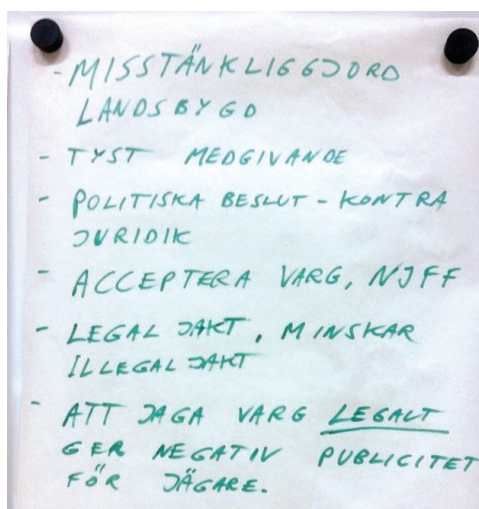 - MISSTÄNKLIGGJORD
LANDSBYGD
- TYST MEDGIVANDE
- POLITISKA BESLUT - KONTRA
JURIDIK
- ACCEPTERA VARG, NJFF
- LEGAL JAKT, MINSKAR
ILLEGAL JAKT
- ATT JAGA VARG LEGALT
GER NEGATIV PUBLICITET
FÖR JÄGARE.